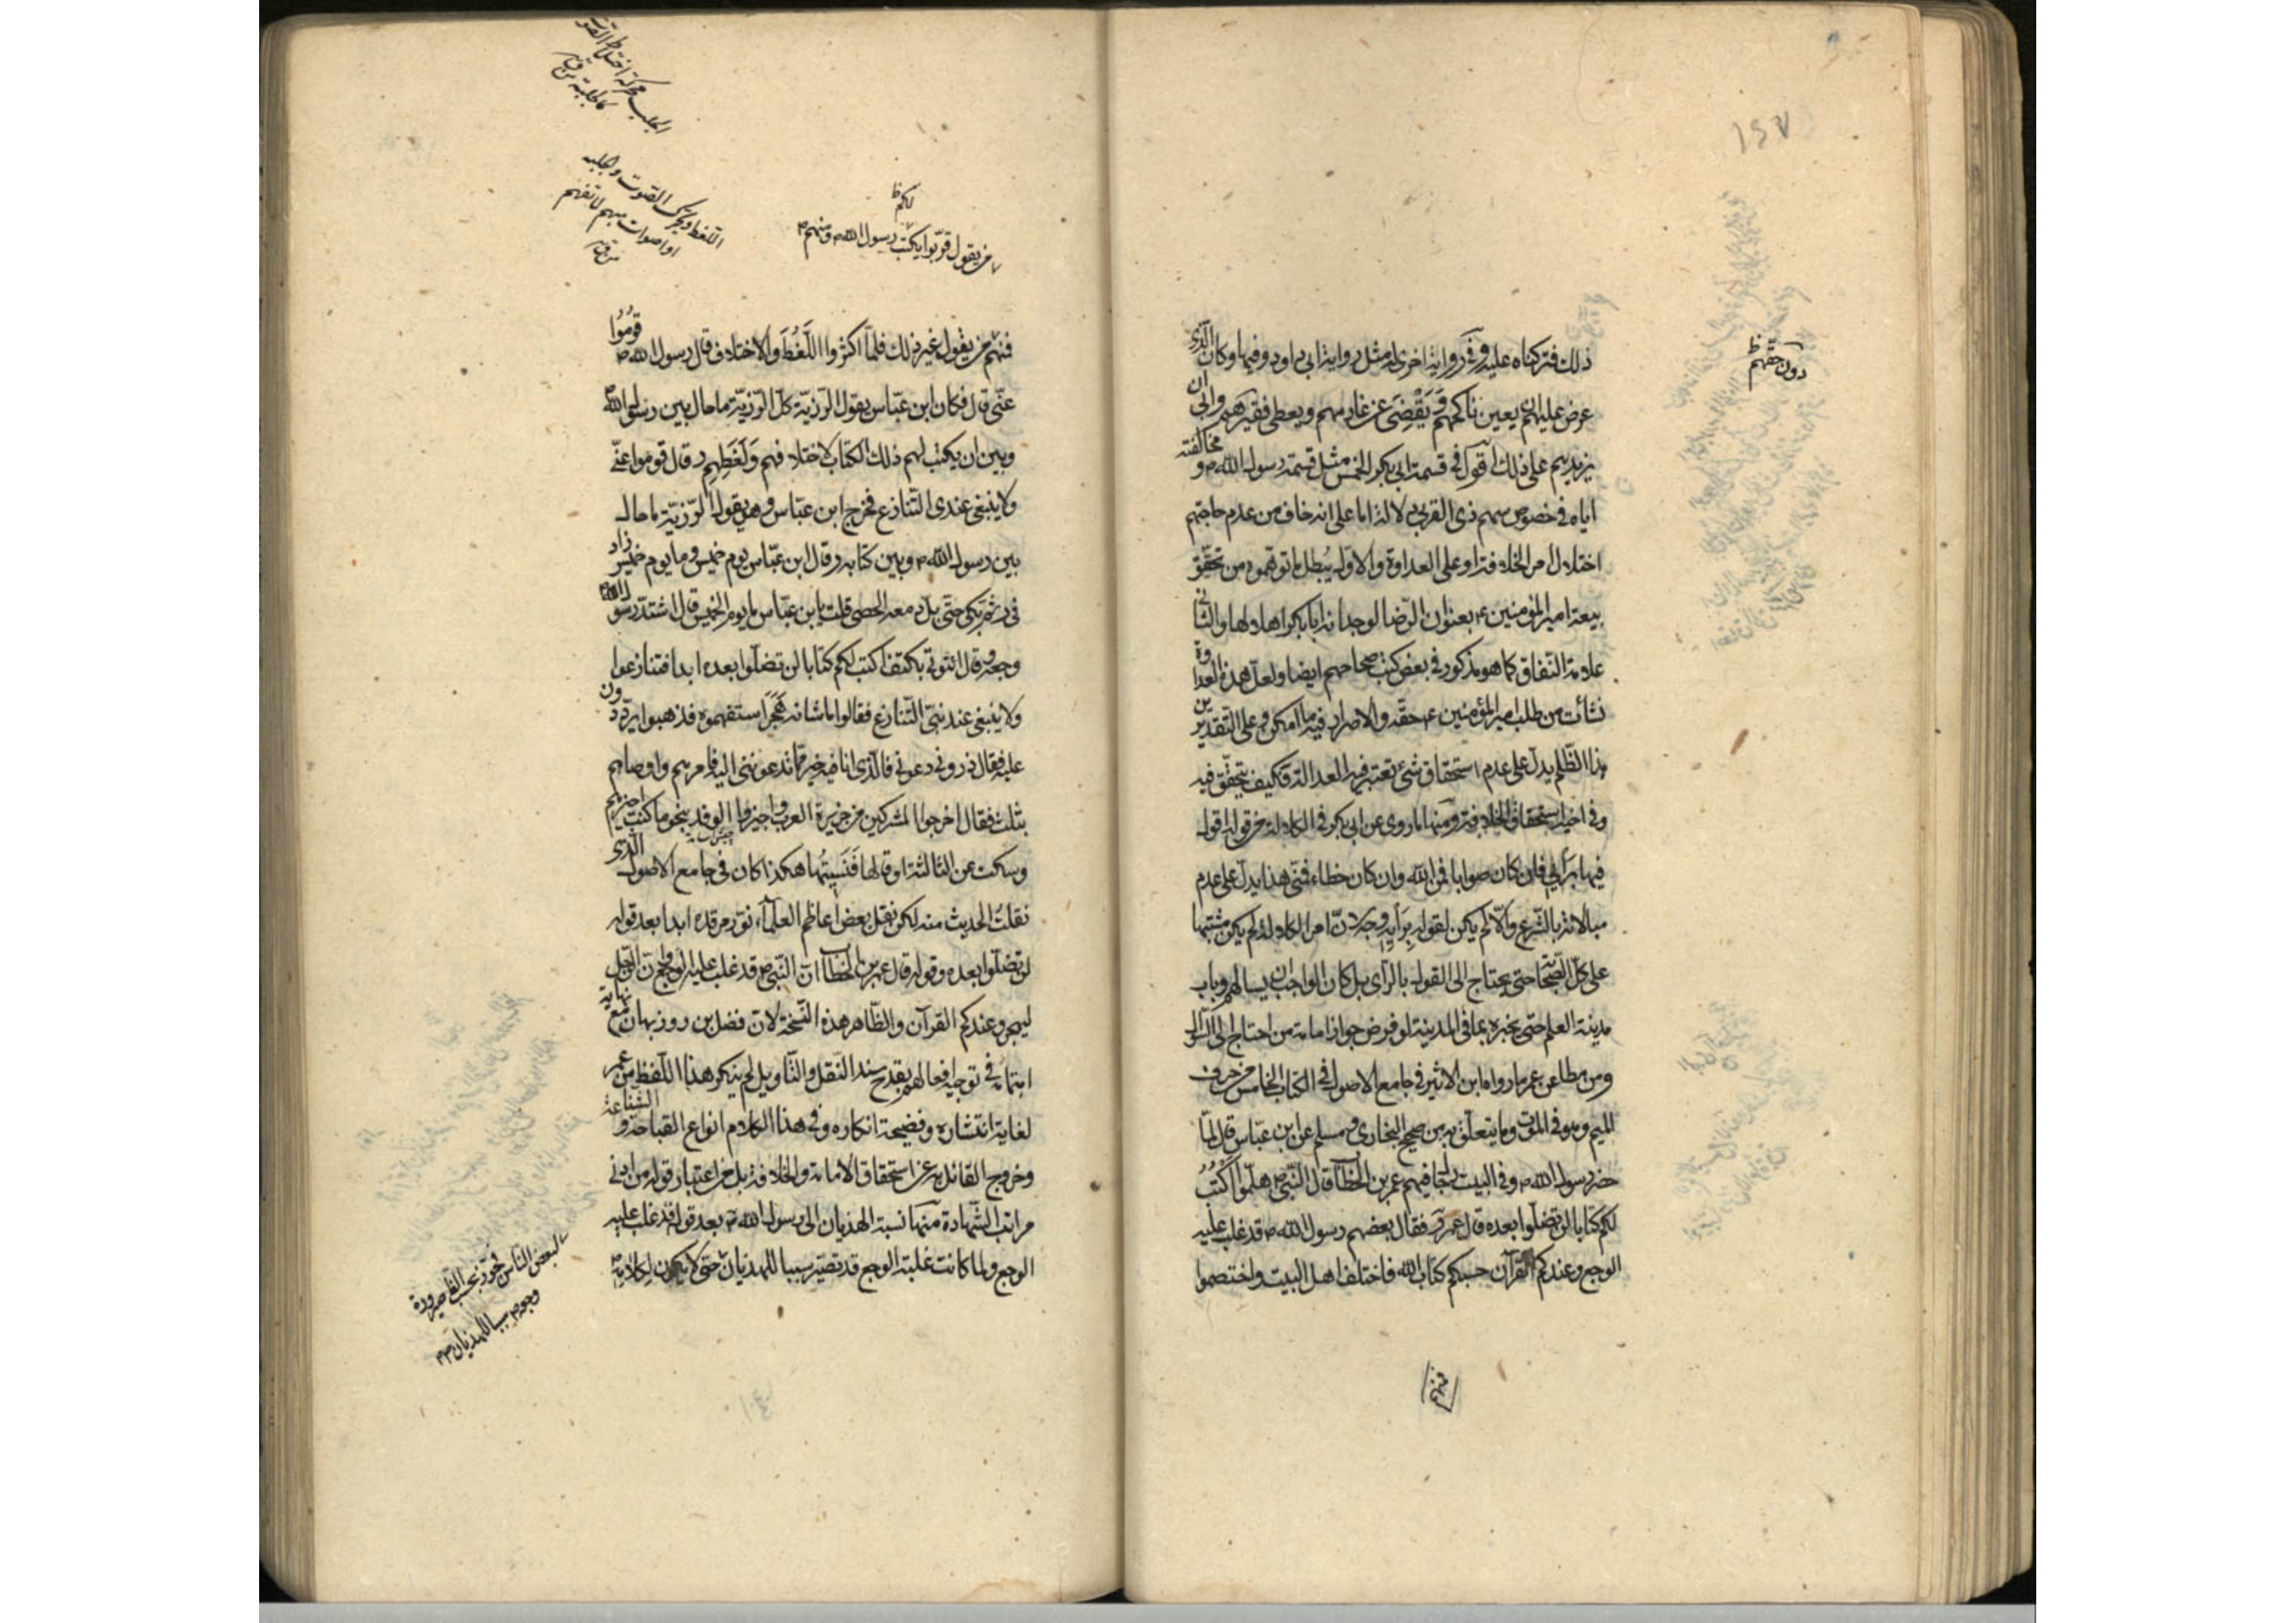 ١٤٧
دون حقهم ظ
ذلك فتركناه عليه وفي رواية اخرى له مثل رواية ابي داود وفيها وكان الذي
عرض عليهم ان يعين ناكحهم ويقضى عن غارمهم ويعطى فقيرهم وابى ان
يزيدهم على ذلك اقول في قسمة ابي بكر الخمس مثل قسمة رسول الله ص و مخالفته
اياه في خصوص سهم ذى القربى دلالة اما على انه خاف من عدم حاجتهم
اختلال امر الخلافة او على العداوة والاول يبطل ما توهموه من تحقق
بيعة امير المؤمنين ع بعنوان الرضا لوجدانه ابا بكر اهلا لها والثاني
علامة النفاق كما هو مذكور في بعض كتب صحاحهم ايضا ولعل هذه العداوة
نشأت من طلب امير المؤمنين ع حقه والاصرار فيه ما امكن وعلى التقديرين
هذا الظلم يدل على عدم استحقاق شئ تعتبر فيه العدالة فكيف يتحقق فيه
وفي اخيه استحقاق الخلافة ومنها ما روى عن ابي بكر في الكلالة من قوله اقول
فيها برأيي فان كان صوابا فمن الله وان كان خطاء فمنى هذا يدل على عدم
مبالاته بالشرع والا لم يكن لقوله برأيه وجه لان امر الكلالة لم يكن مشتبها
على كل الصحابة حتى يحتاج الى القول بالرأى بل كان الواجب ان يسالهم وباب
مدينة العلم حتى يخبره بما في المدينة لو فرض جواز امامة من احتاج الى السؤال
ومن مطاعن عمر ما رواه ابن الاثير في جامع الاصول في الكتاب الخامس من حرف
الميم وهو في الموت وما يتعلق به من صحيح البخاري ومسلم عن ابن عباس قال لما
حضر رسول الله ص وفي البيت رجال فيهم عمر بن الخطاب قال النبي ص هلموا اكتب
لكم كتابا لن تضلوا بعده قال عمر فقال بعضهم رسول الله ص قد غلب عليه
الوجع وعندكم القرآن حسبكم كتاب الله فاختلف اهل البيت واختصموا
فمنهم
الجلب محركة اختلاط الصوت
كالجلبة من ق
اللغط ويحرك الصوت والجلبة
او اصوات مبهمة لا تفهم
من ق
لكم ظ
من يقول قربوا يكتب رسول الله ص ومنهم
فمنهم من يقول غير ذلك فلما اكثروا اللغط والاختلاف قال رسول الله ص قوموا
عنى قال فكان ابن عباس يقول الرزية كل الرزية ما حال بين رسول الله ص
وبين ان يكتب لهم ذلك الكتاب لاختلافهم ولغطهم وقال قوموا عنى
ولا ينبغي عندى التنازع فخرج ابن عباس وهو يقول الرزية ما حال
بين رسول الله ص وبين كتابه وقال ابن عباس يوم خميس وما يوم خميس زاد
في ثم بكى حتى بل دمعه الحصى قلت يا بن عباس ما يوم الخميس قال اشتد رسول الله
وجعه وقال ائتونى بكتف اكتب لكم كتابا لن تضلوا بعده ابدا فتنازعوا
ولا ينبغي عند نبى التنازع فقالوا ما شانه هجر استفهموه فذهبوا يردون
عليه فقال ذرونى دعونى فالذى انا فيه خير مما تدعوننى اليه فامرهم واوصاهم
بثلث فقال اخرجوا المشركين من جزيرة العرب واجيزوا الوفد بنحو ما كنت اجيزهم
وسكت عن الثالثة او قالها فنسيتها هكذا كان في جامع الاصول الذي
نقلت الحديث منه لكن نقل بعض اعاظم العلماء نور مرقده ابدا بعد قوله
لن تضلوا بعده وقوله قال عمر بن الخطاب ان النبي ص قد غلب عليه الوجع وان الرجل
ليهجر وعندكم القرآن والظاهر هذه النسخة لان فضل بن روزبهان مع نهاية
اهتمامه في توجيه افعالهم بقدح سند النقل والتاويل لم ينكر هذا اللفظ من عمر
لغاية انتشاره وفضيحة انكاره وفي هذا الكلام انواع القباحة و الشناعة
وخروج القائل به عن استحقاق الامامة والخلافة بل عن اعتبار قوله من ادنى
مراتب الشهادة منها نسبة الهذيان الى رسول الله ص بعد قوله قد غلب عليه
الوجع ولما كانت غلبة الوجع قد تصير سببا للهذيان حتى لا يكون لكلامه
لبعض الناس فجوز بحسب الظاهر صيرورة
وجعه ص سببا للهذيان